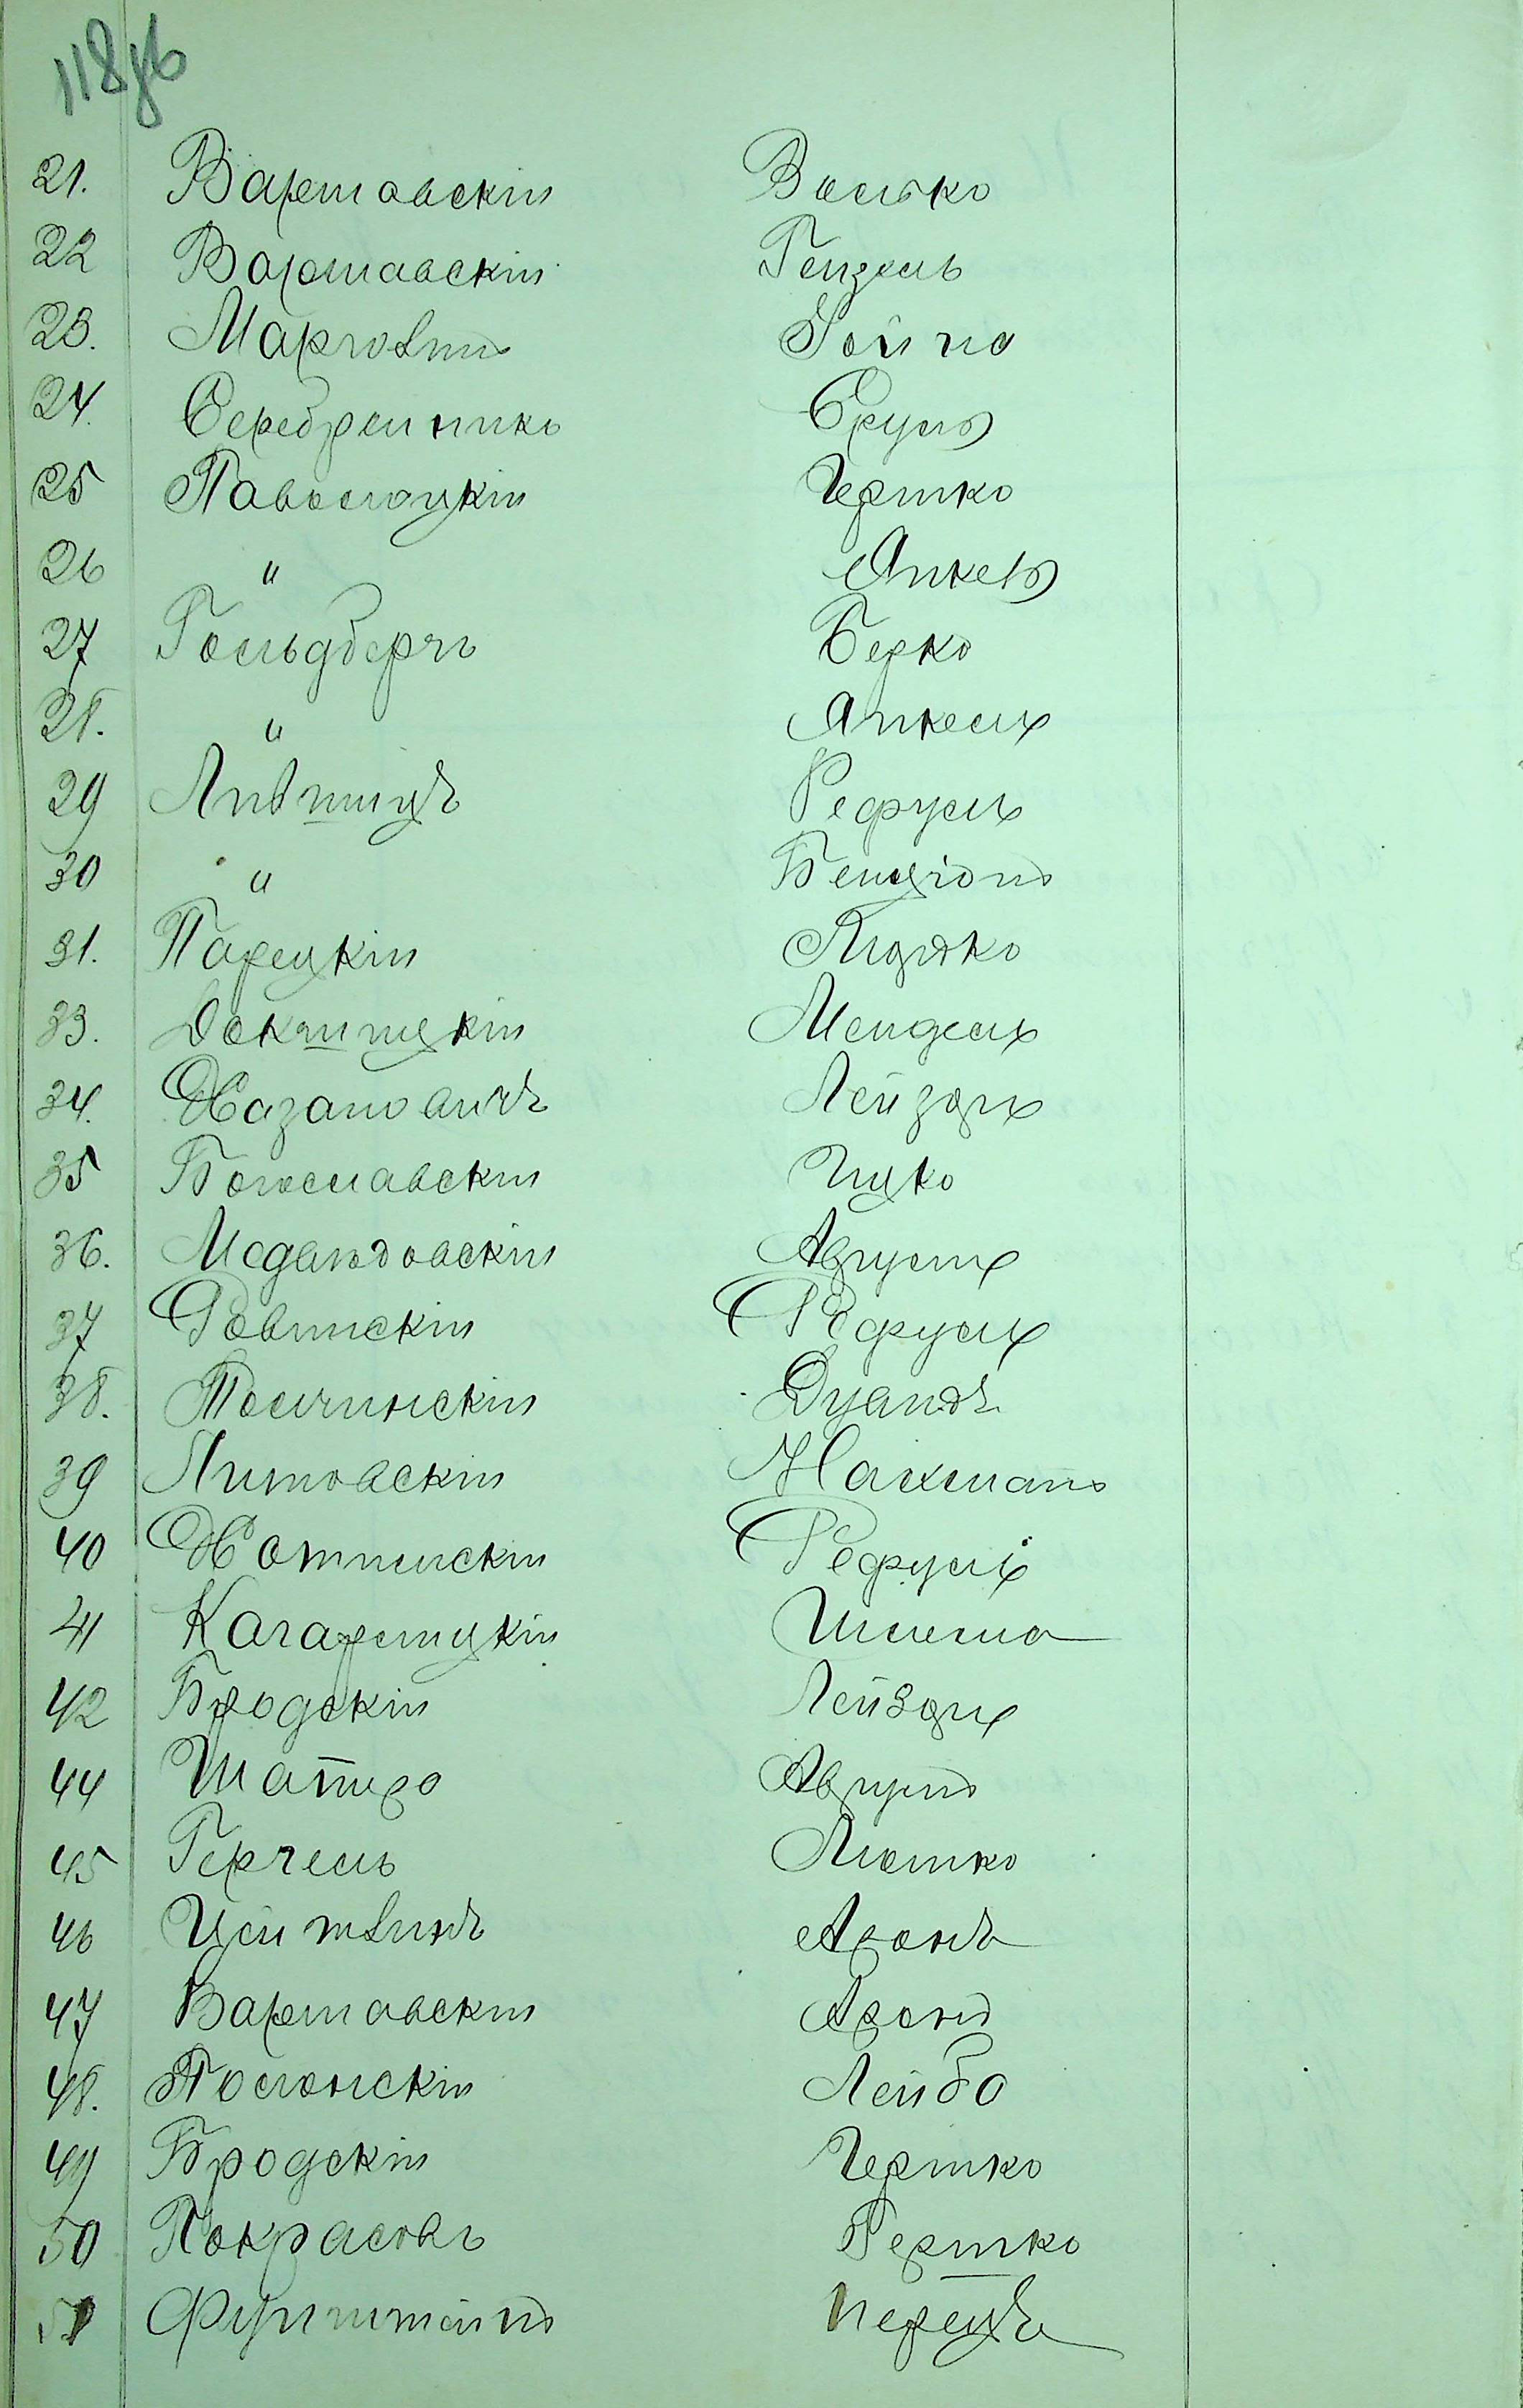 118об
21. Варшавскій Волько
22 Варшавскій Гензель
23. Марголинъ Хаина
24. Серебренникъ Сруль
25 Паволоцкій Гершко
26 " Янкель
27 Гольдбергъ Берко
28. " Янкель
29 Лившицъ Рефулъ
30 " Бенціонъ
31. Парецкій Ицко
33. Докшицкій Мендель
34. Хазановичъ Лейзоръ
35 Богославскій Ицко
36. Медвидовскій Аврумъ
37 Ровинскій Рефулъ
38. Толчинскій Дувидъ
39 Литовскій Нахманъ
40 Хотинскій Рефулъ
41 Кагарлицкій Шлема
42 Бродскій Лейзоръ
44 Шапиро Аврумъ
45 Герчель Мошко
46 Цейтлинъ Аронъ
47 Варшавскій Аронъ
48. Полонскій Лейбо
49 Бродскій Гершко
50 Покрасовъ Гершко
51 Перецъ